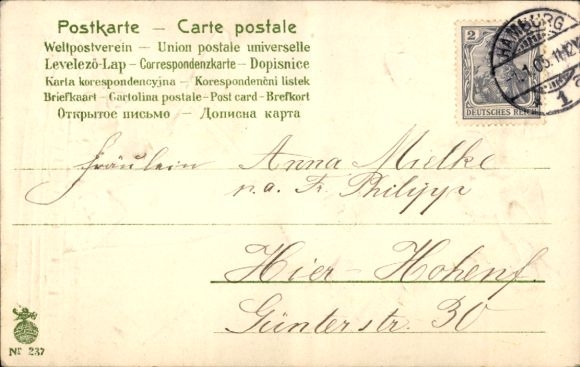 Postkarte — Carte postale
Weltpostverein — Union postale universelle
Levelező-Lap — Correspondenzkarte — Dopisnice
Karta korespondencyjna — Korespondenční listek
Briefkaart — Cartolina postale — Post card — Brefkort
Открытое письмо — Дописна карта
2
DEUTSCHES REICH
HAMBURG
1
Fräulein Anna Mielke
Fr. Philipp
Hier-Hohenf.
Günterstr. 30
Nr 237